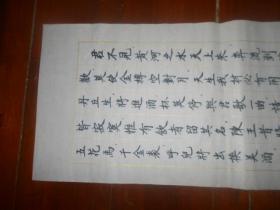 君不見黃河之水天上來奔流到
歡莫使金樽空對月天生我材必有用
丹丘生將進酒杯莫停與君歌一曲請
皆寂寞惟有飲者留其名陳王昔時
五花馬千金裘呼兒將出換美酒